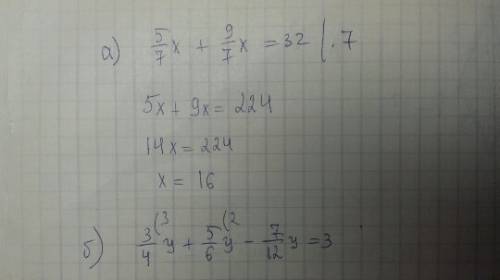 а) 5/7 x + 9/7 x = 32 | . 7
5x + 9x = 224
14x = 224
x = 16
б) 3/4 (3 y + 5/6 (2 y - 7/12 y = 3